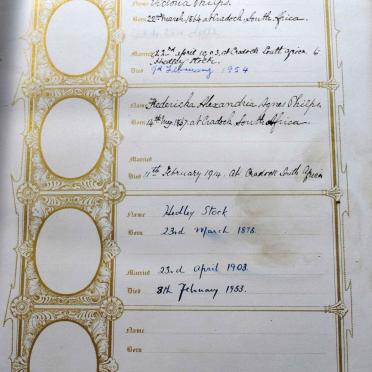 Victoria Philps.
Born 22nd March 1864 at Cradock, South Africa.
Married 22nd April 1903, at Cradock South Africa to
Hedley Stock.
Died 9th February 1954
Fredericka Alexandria Agnes Philps.
Born 14th 1867 at Cradock South Africa.
Married
Died 11th February 1914. At Cradock South Africa
Name Hedley Stock
Born 23rd March 1878.
Married 23rd April 1903.
Died 8th February 1953.
Name
Born